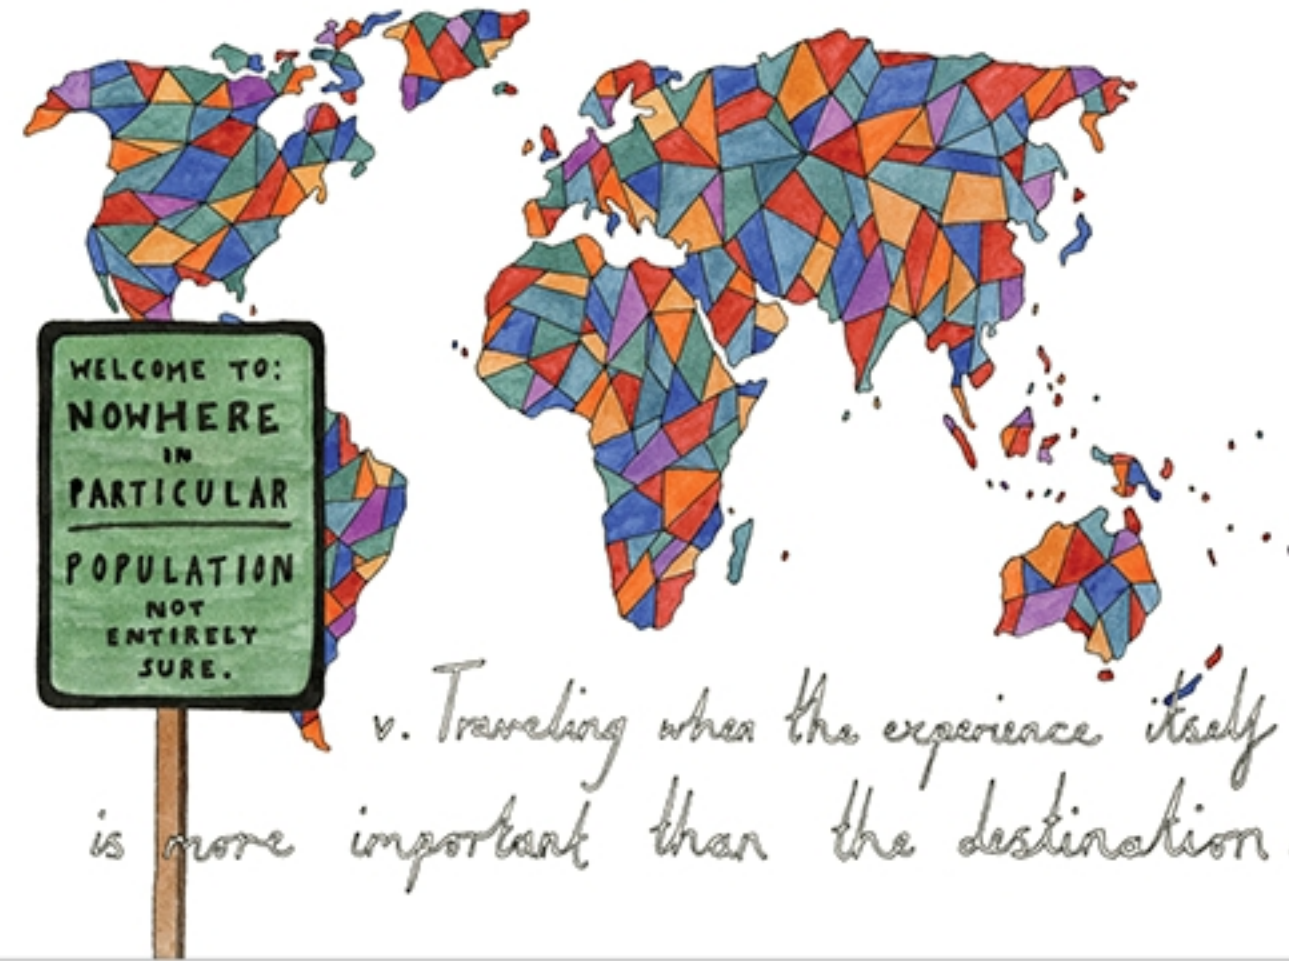 WELCOME TO:
NOWHERE
IN
PARTICULAR
POPULATION
NOT
ENTIRELY
SURE.
v. Traveling when the experience itself
is more important than the destination.